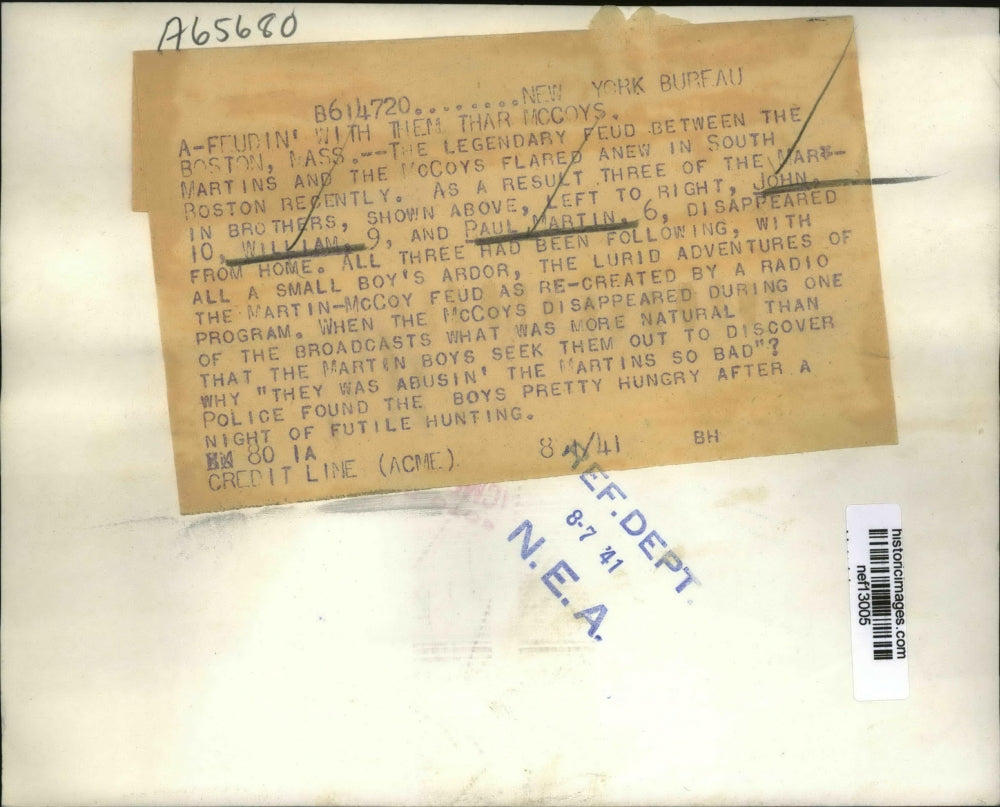 A65680
B614720........NEW YORK BUREAU
A-FEUDIN' WITH THEM THAR MCCOYS.
BOSTON, MASS.--THE LEGENDARY FEUD BETWEEN THE
MARTINS AND THE MCCOYS FLARED ANEW IN SOUTH
BOSTON RECENTLY. AS A RESULT THREE OF THE MART-
IN BROTHERS, SHOWN ABOVE, LEFT TO RIGHT, JOHN,
10, WILLIAM, 9, AND PAUL MARTIN, 6, DISAPPEARED
FROM HOME. ALL THREE HAD BEEN FOLLOWING, WITH
ALL A SMALL BOY'S ARDOR, THE LURID ADVENTURES OF
THE MARTIN-MCCOY FEUD AS RE-CREATED BY A RADIO
PROGRAM. WHEN THE MCCOYS DISAPPEARED DURING ONE
OF THE BROADCASTS WHAT WAS MORE NATURAL THAN
THAT THE MARTIN BOYS SEEK THEM OUT TO DISCOVER
WHY "THEY WAS ABUSIN' THE MARTINS SO BAD"?
POLICE FOUND THE BOYS PRETTY HUNGRY AFTER A
NIGHT OF FUTILE HUNTING.
80 1A
CREDIT LINE (ACME) 8/ /41 BH
REF. DEPT.
8-7 '41
N.E.A.
historicimages.com
nef13005